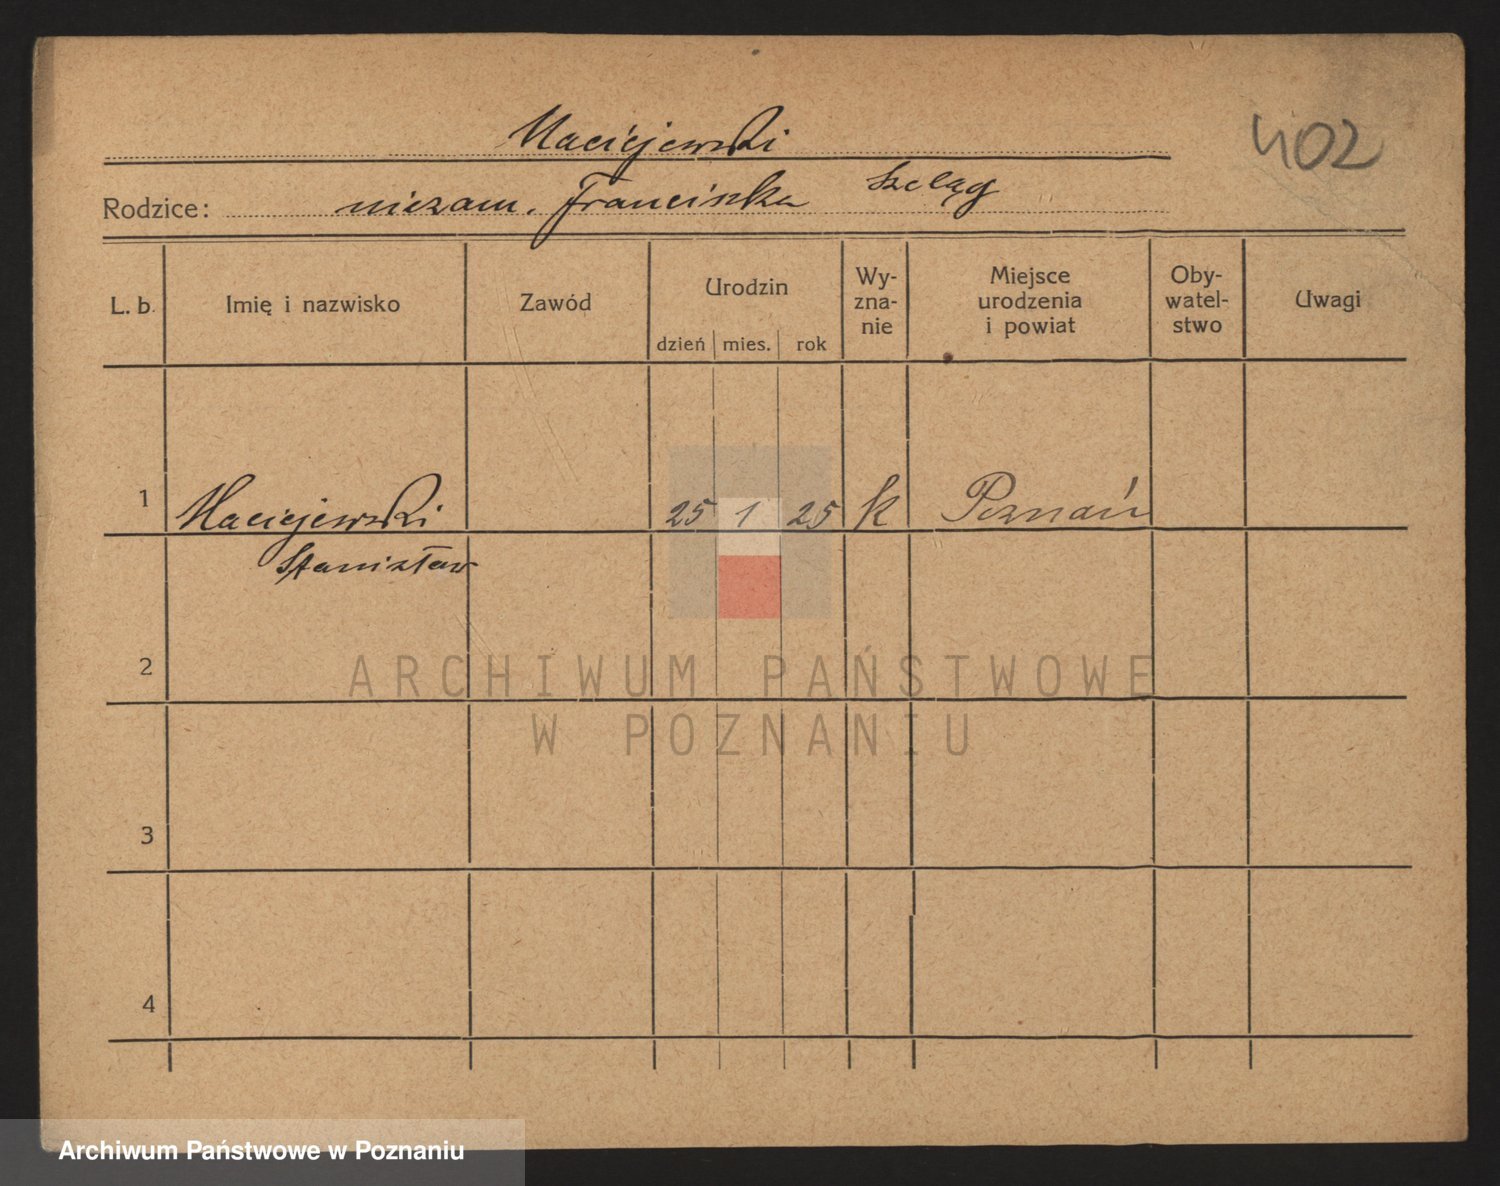 Maciejewski
402
Rodzice: niezam. Franciszka Szeląg
L. b. Imię i nazwisko Zawód Urodzin Wy-zna-nie Miejsce urodzenia i powiat Oby-watel-stwo Uwagi
dzień mies. rok
1 Maciejewski 25 1 25 k Poznań
Stanisław
2
ARCHIWUM PAŃSTWOWE
W POZNANIU
3
4
Archiwum Państwowe w Poznaniu